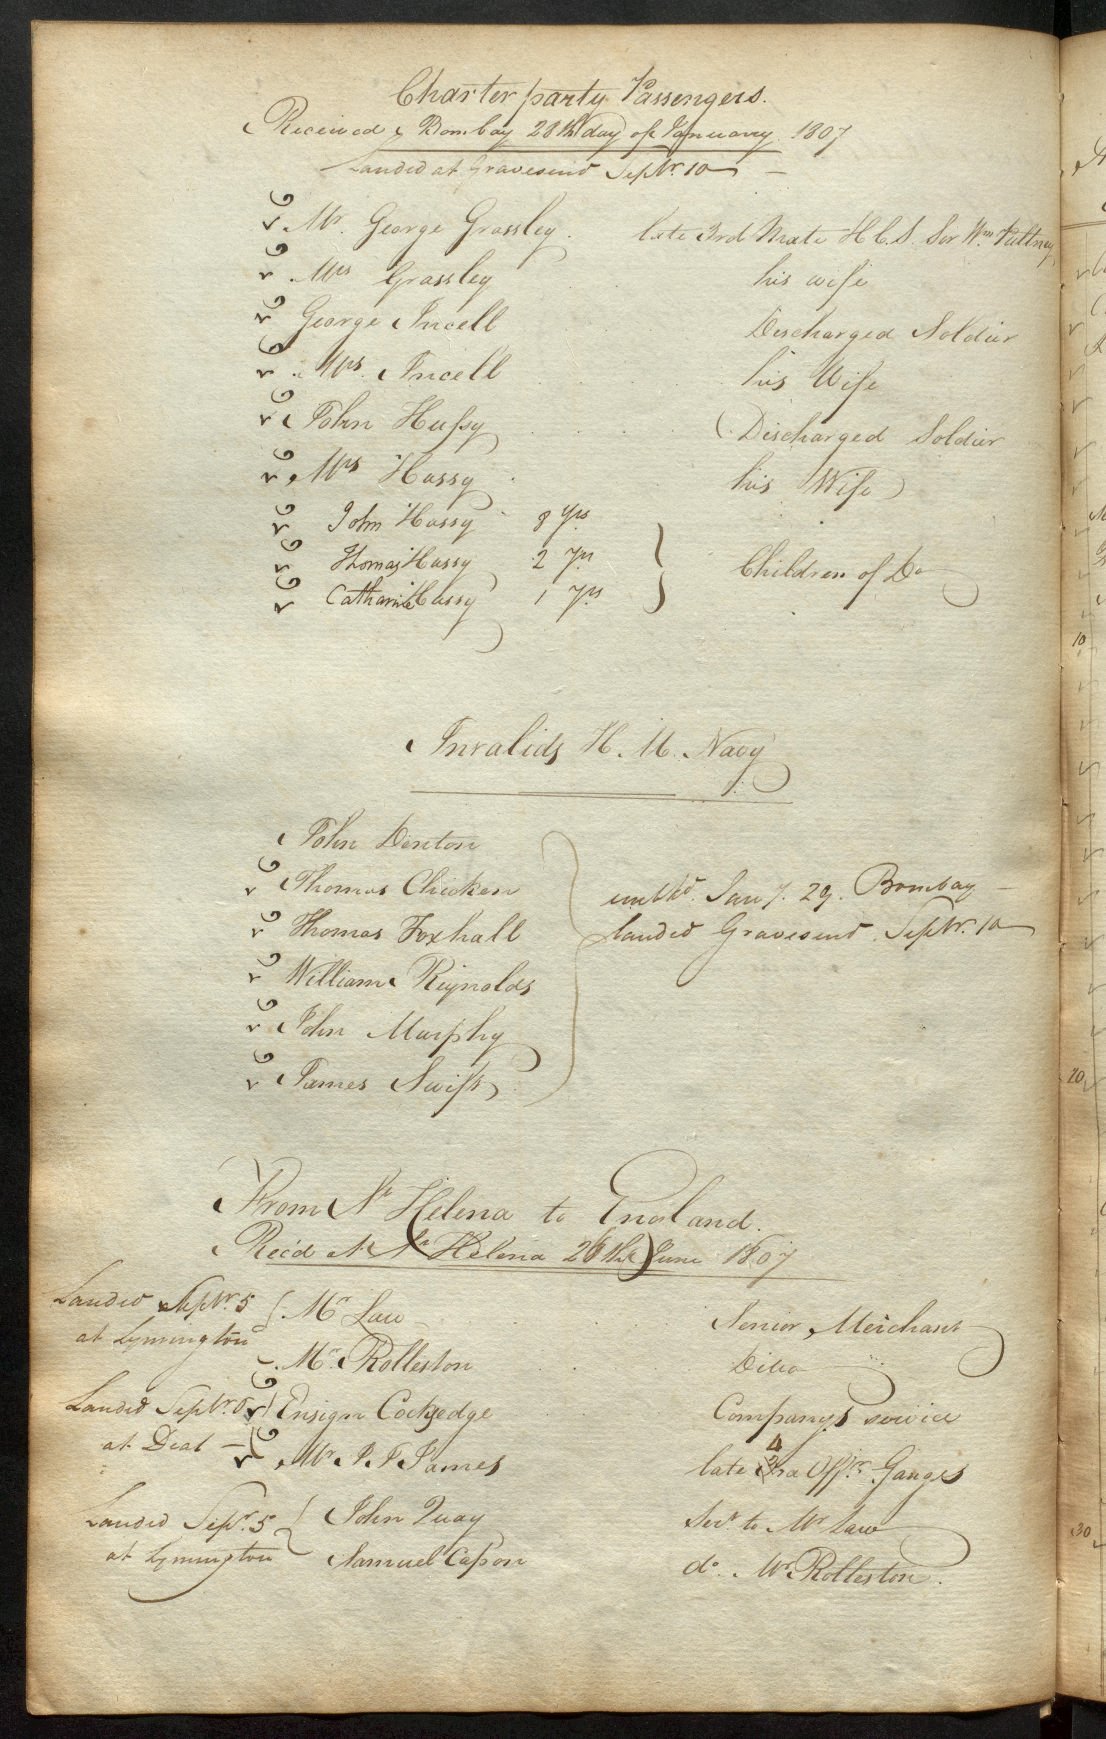 Charter party Passengers.
Received Bombay 28th day of January 1807
Landed at Gravesend Septr. 10
Mr. George Grassley. late 3rd Mate H C S. Sir Wm Pultney
Mrs Grassley his wife
George Incell Discharged Soldier
Mrs. Incell his Wife
John Hussy Discharged Soldier
Mrs Hussy his Wife
John Hussy 8 Yrs
Thomas Hussy 2 Yrs Children of Do
Catharine Hussy 1 Yrs
Invalids H. M. Navy
John Denton
Thomas Chicken Jany. 29. Bombay
Thomas Foxhall Landed Gravesend Septr. 10
William Reynolds
John Murphy
James Swift
From St Helena to England.
Rec'd At St Helena 26th June 1807
Landed Septr. 5 Mr Law Senior Merchant
at Lymington
Mr. Rolleston Ditto
Landed Septr. 6 Ensign Cocksedge Company's service
at Deal Mr J. T James late 4 Offr. Ganges
Landed Sepr. 5 John Quay Sert to Mr Law
at Lymington Samuel Capon do. Mr Rolleston.
10
20
30